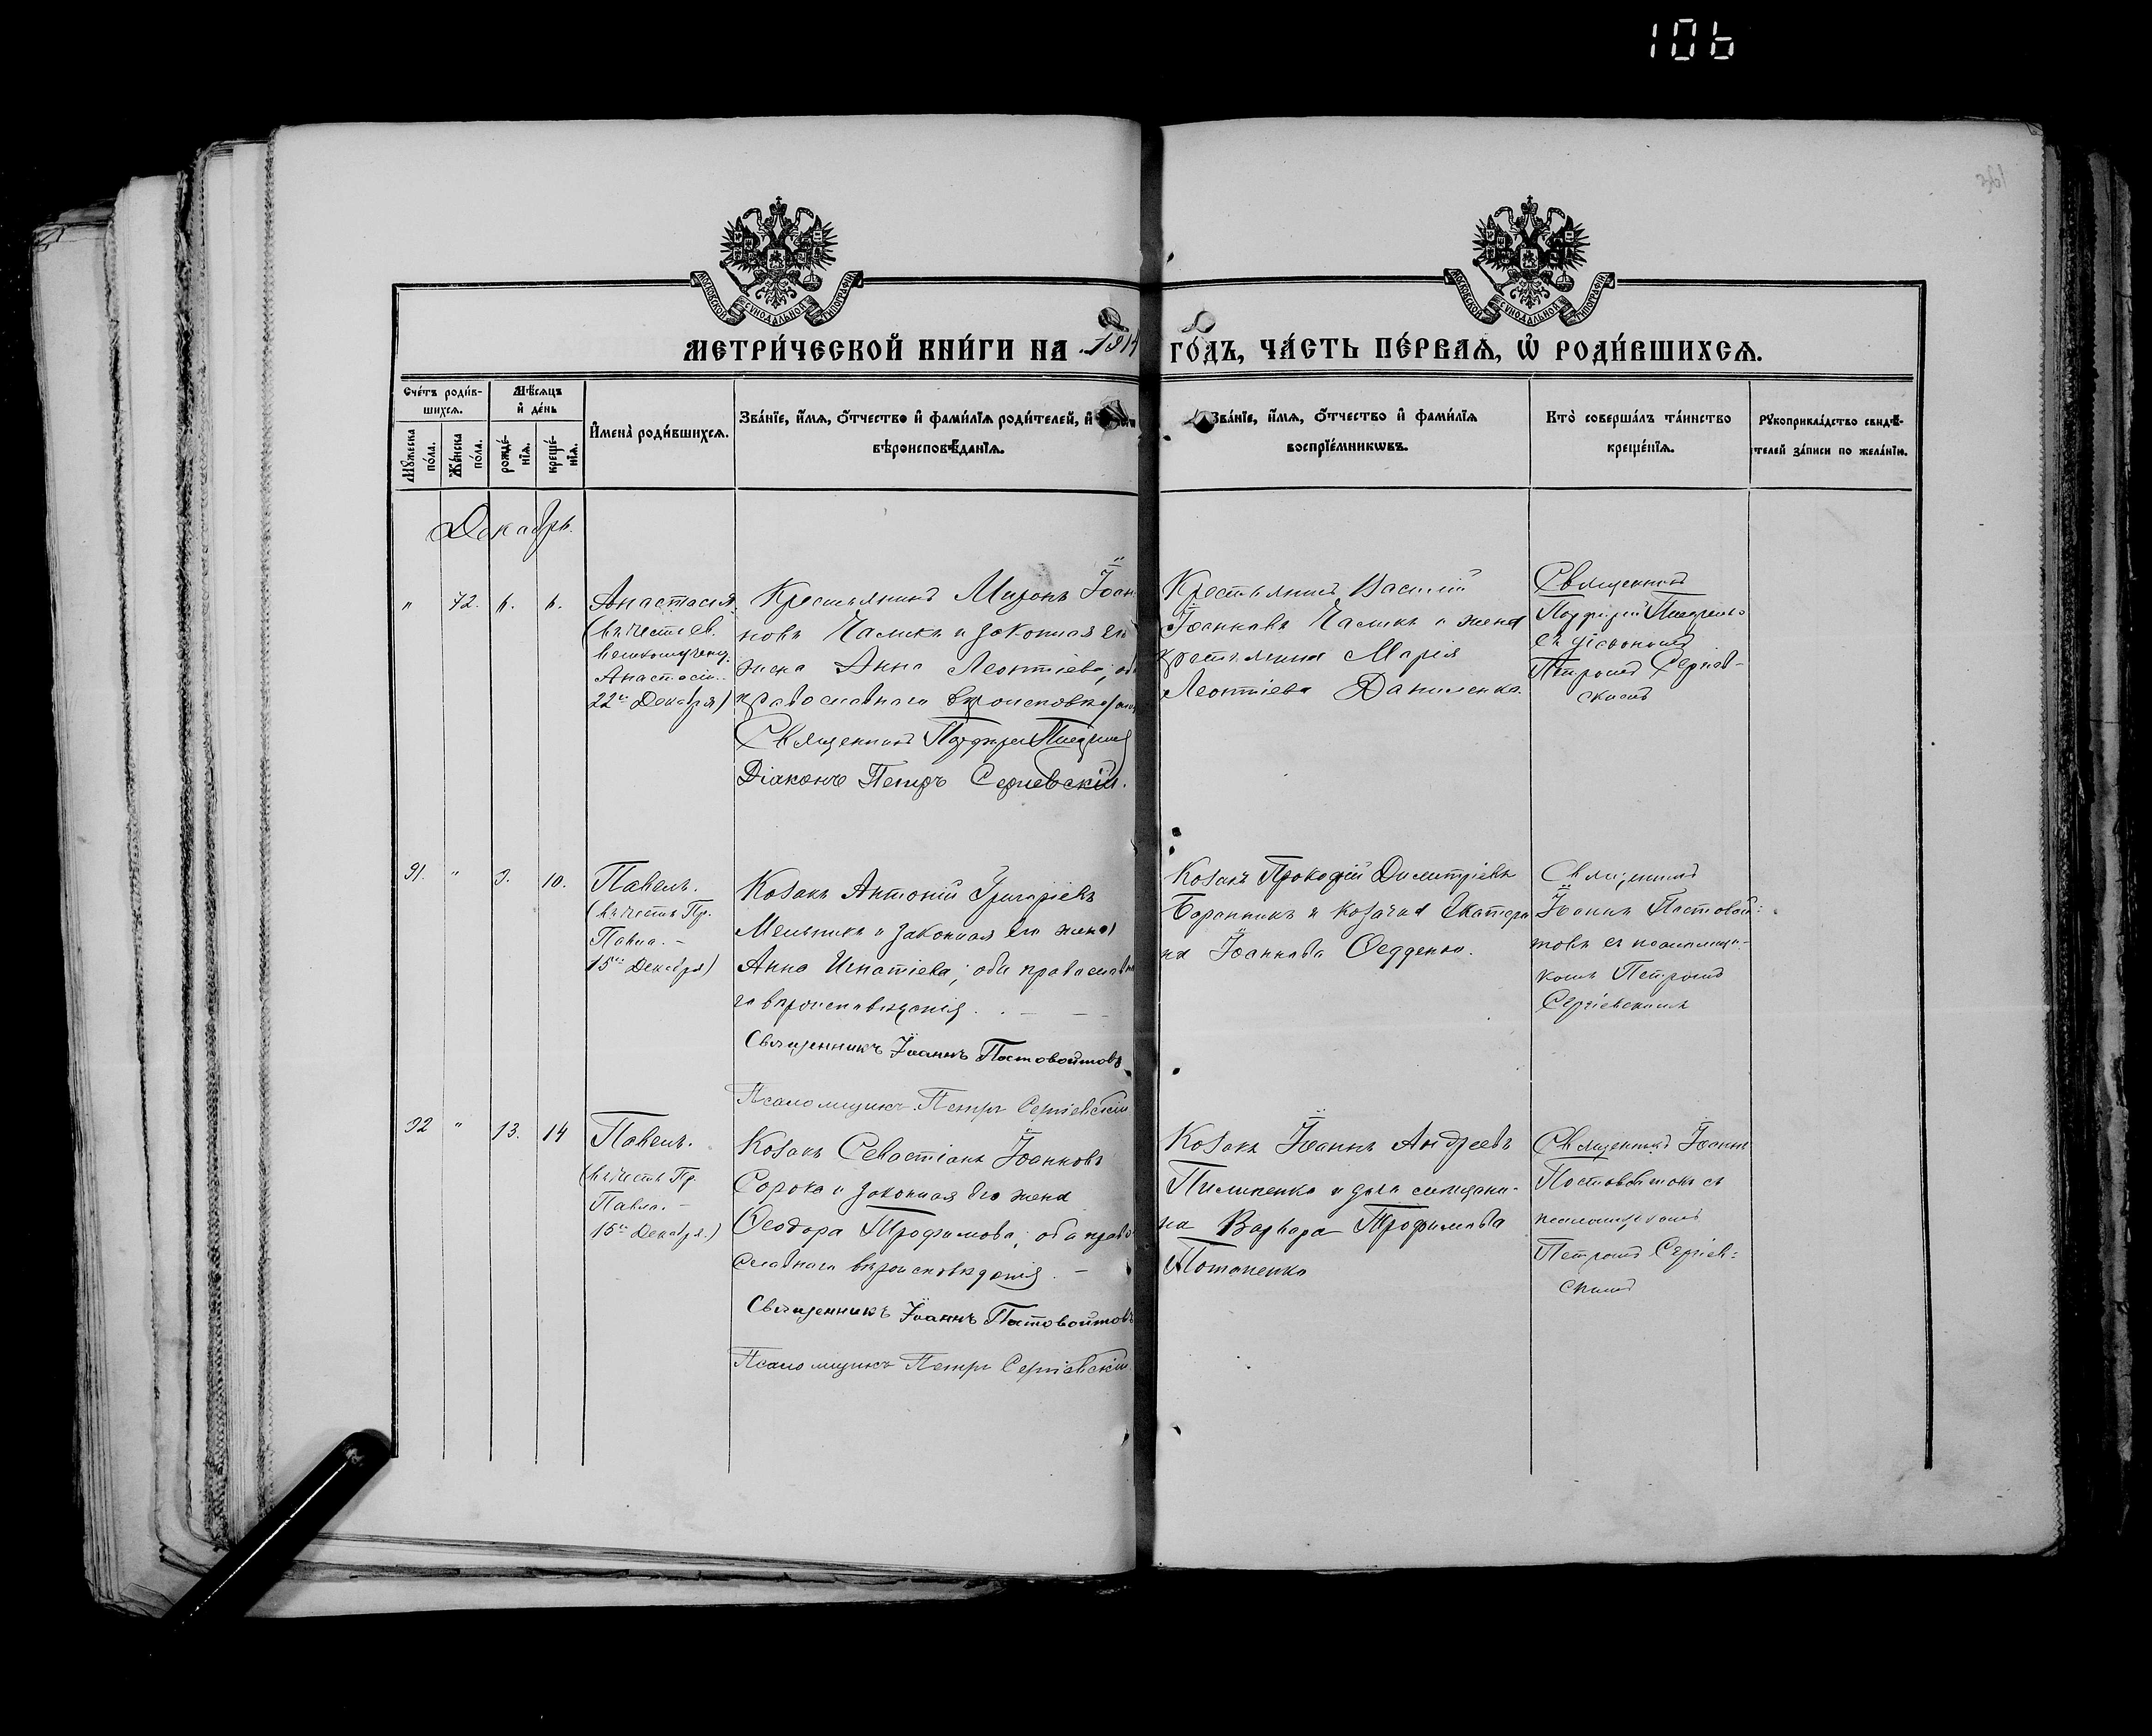 106
МОСКОВСКОЙ СѴНОДАЛЬНОЙ ТИПОГРАФІИ
МОСКОВСКОЙ СѴНОДАЛЬНОЙ ТИПОГРАФІИ
МЕТРИ́ЧЕСКОЙ КНИ́ГИ НА 1914 ГО́ДЪ, ЧА́СТЬ ПЕ́РВАѦ, Ѡ҆ РОДИ́ВШИХСѦ.
Сче́тъ роди́в-
шихсѧ.
Мѣ́сѧцъ
и҆ де́нь
Мꙋ́жеска по́ла.
Же́нска по́ла.
рожде́-
нїѧ.
креще́-
нїѧ.
И҆мена̀ роди́вшихсѧ.
Зва́нїе, и҆́мѧ, ѻ҆́тчество и҆ фами́лїѧ роди́телей, и҆
вѣроисповѣ́данїѧ.
Зва́нїе, и҆́мѧ, ѻ҆́тчество и҆ фами́лїѧ
воспрїе́мникѡвъ.
Кто̀ соверша́лъ та́инство
креще́нїѧ.
Рꙋкоприкла́дство свидѣ́-
телей за́писи по жела́нїю.
Декабрь.
" 72. 6. 6.
Анастасія
(въ честь св.
великомучен.
Анастасіи.
22го Декабря)
Крестьянинъ Миронъ Іоан
новъ Чаликъ и законная его
жена Анна Леонтіева; оба
православнаго вѣроисповѣдан
Священникъ Порфирій
Діаконъ Петръ Сергіевскій.
Крестьянинъ Василій
Іоанновъ Чаликъ и жена
крестьянина Марія
Леонтіева Даниленко.
Священникъ
Порфирій
съ діакономъ
Петромъ Сергіев-
скимъ
91. " 9. 10.
Павелъ.
(въ честь Пр.
Павла. –
15го Декабря)
Козакъ Антоній Григоріевъ
Мельникъ и законная его жена
Анна Игнатіева; оба православна
го вѣроисповѣданія.
Священникъ Іоаннъ Постовойтовъ
Псаломщикъ Петръ Сергіевскій
Козакъ Прокофій Димитріевъ
Баранникъ и козачка Екатери
на Іоаннова Федденко.
Священникъ
Іоаннъ Постовой-
товъ съ псаломщи-
комъ Петромъ
Сергіевскимъ
92 " 13. 14
Павелъ.
(въ честь Пр.
Павла. –
15го Декабря.)
Козакъ Севастіанъ Іоанновъ
Сорока и законная его жена
Ѳеодора Трофимова; оба право
славнаго вѣроисповѣданія. –
Священникъ Іоаннъ Постовойтовъ
Псаломщикъ Петръ Сергіевскій.
Козакъ Іоаннъ Андреевъ
Пилипенко и дочь мѣщани-
на Варвара Трофимова
Потапенко
Священникъ Іоаннъ
Постовойтовъ съ
псаломщикомъ
Петромъ Сергіев-
скимъ